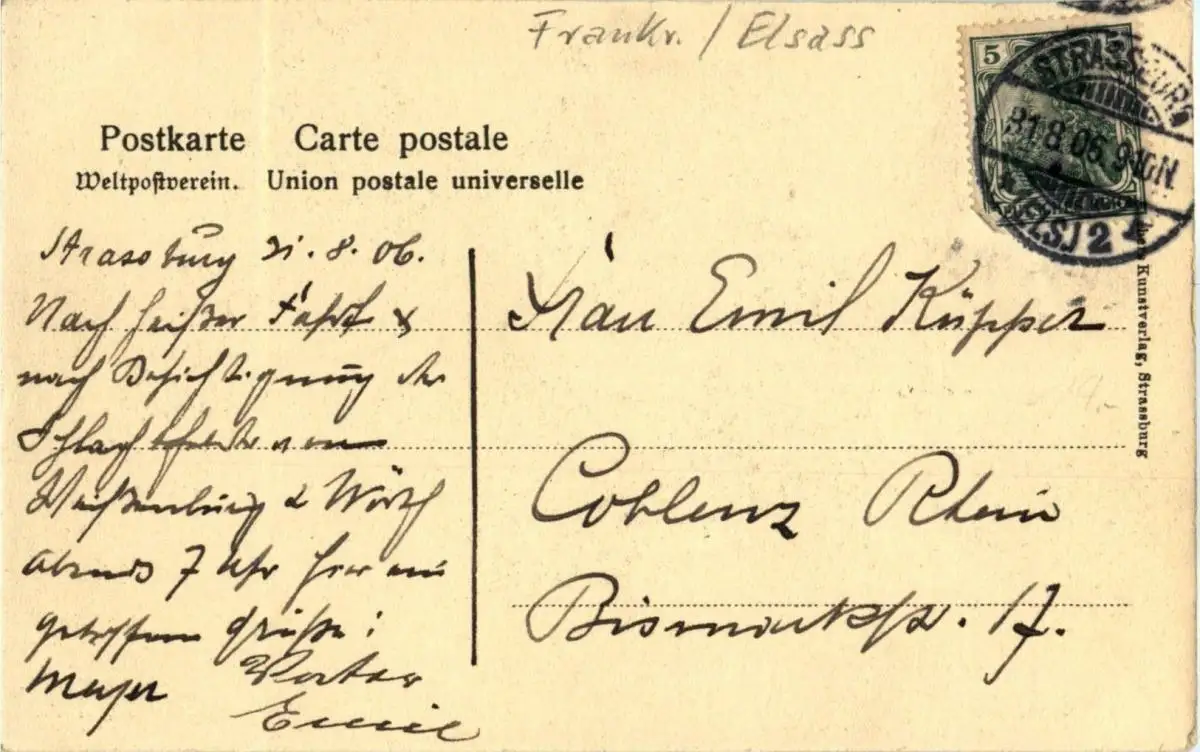 Frankr. / Elsass
5
STRASSBURG
31.8.06. 9-10N.
(ELS.) 2
Postkarte Carte postale
Weltpostverein. Union postale universelle
Strassburg 31. 8. 06.
Nach heißer Fahrt &
nach Besichtigung der
Schlachtfelder von
Weißenburg & Wörth
Abends 7 Uhr hier ein
getroffen Grüße:
Meyer
Emil
Frau Emil Küpper
Coblenz Rhein
Bismarckstr. 17.
Kunstverlag, Strassburg